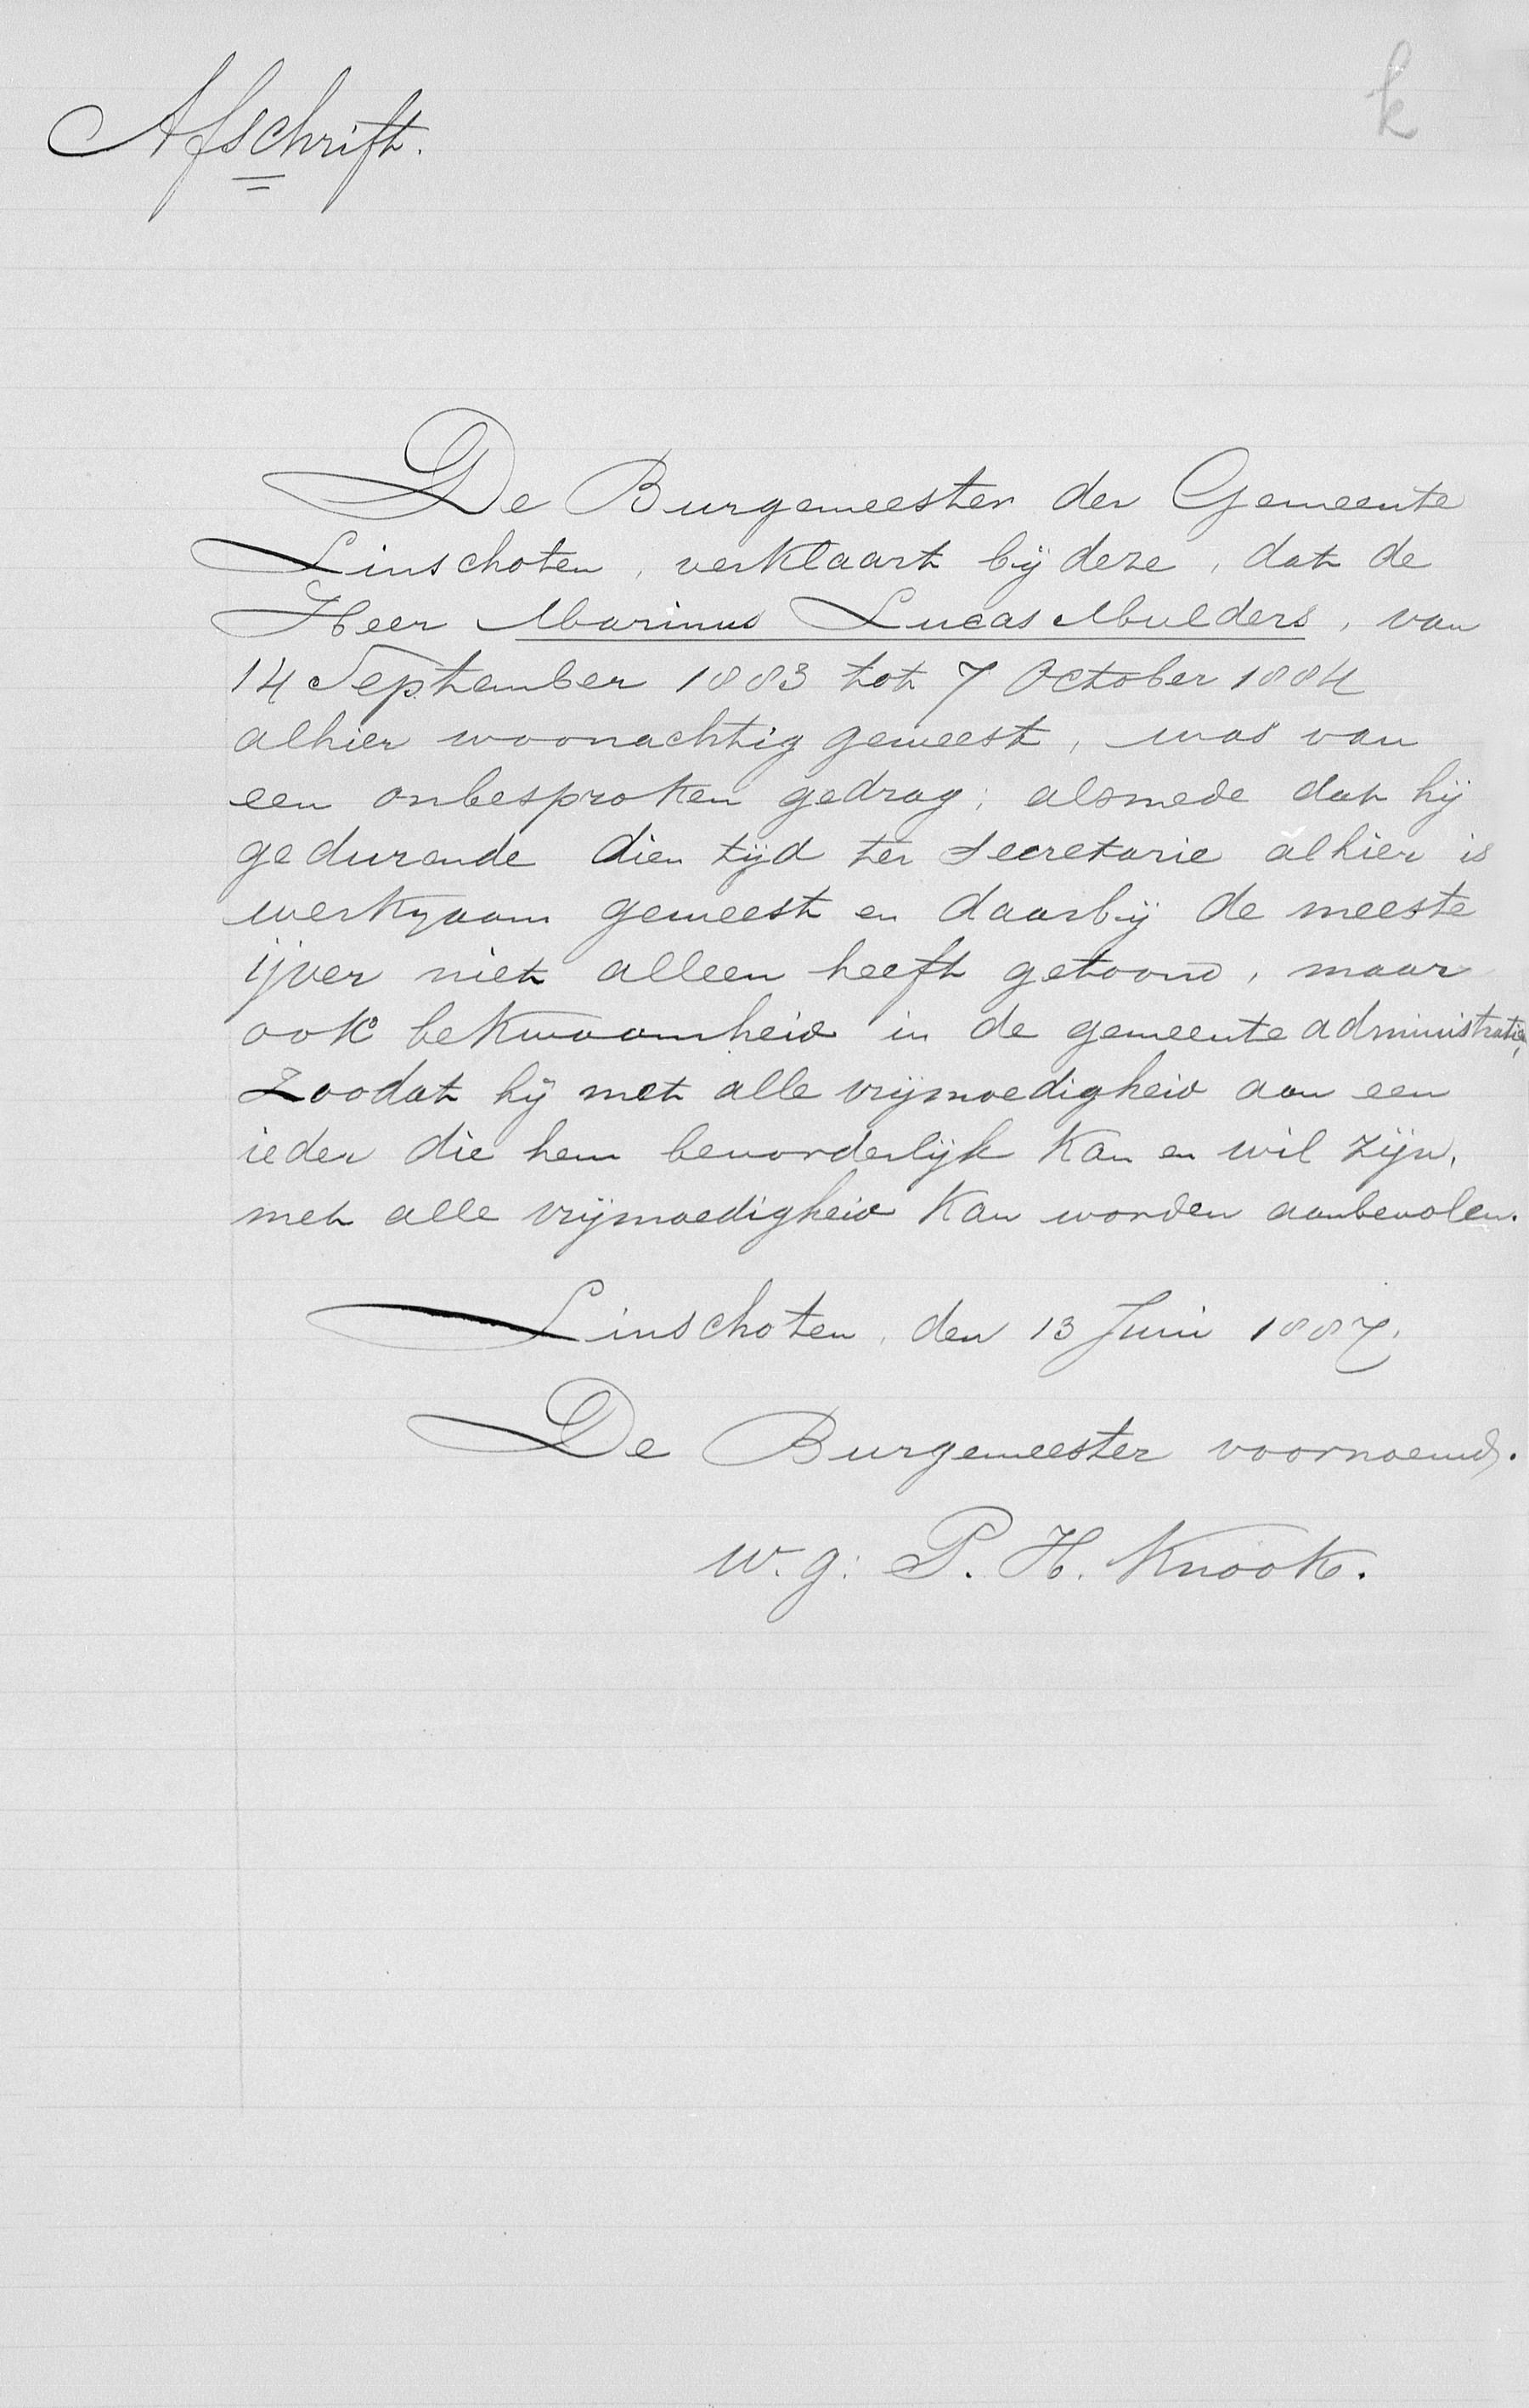 k
Afschrift.
De Burgemeester der Gemeente
Linschoten, verklaart bij deze, dat de
Heer Marinus Lucas Mulders, van
14 September 1883 tot 7 October 1884
alhier woonachtig geweest, was van
een onbesproken gedrag; alsmede dat hij
gedurende dien tijd ter Secretarie alhier is
werkzaam geweest en daarbij de meeste
ijver niet alleen heeft getoond, maar
ook bekwaamheid in de gemeente administratie,
Zoodat hij met alle vrijmoedigheid aan een
ieder die hem bevorderlijk kan en wil zijn,
met alle vrijmoedigheid kan worden aanbevolen.
Linschoten, den 13 Juni 1887.
De Burgemeester voornoemd.
w.g: P. H. Knook.